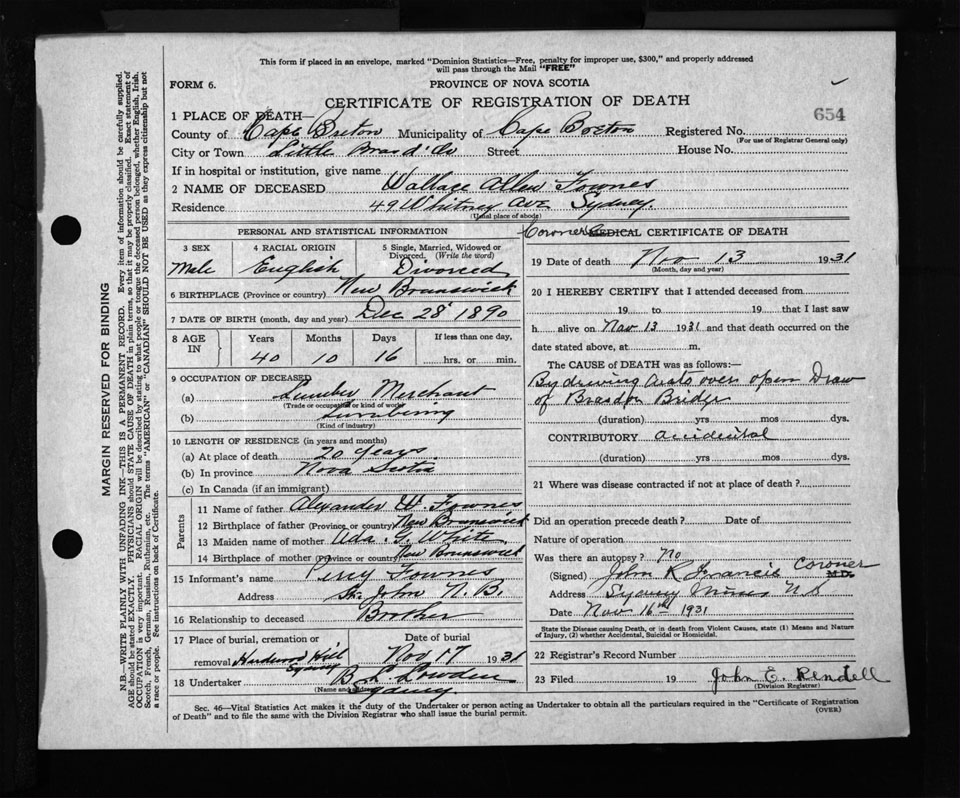 This form if placed in an envelope, marked "Dominion Statistics—Free, penalty for improper use, $300," and properly addressed
will pass through the Mail "FREE"
FORM 6.
PROVINCE OF NOVA SCOTIA
CERTIFICATE OF REGISTRATION OF DEATH
654
1 PLACE OF DEATH—
County of Cape Breton Municipality of Cape Breton Registered No.
(For use of Registrar General only)
City or Town Little Bras d'Or Street House No.
If in hospital or institution, give name
2 NAME OF DECEASED Wallace Allen Fownes
Residence 49 Whitney Ave Sydney.
(Usual place of abode)
PERSONAL AND STATISTICAL INFORMATION
3 SEX 4 RACIAL ORIGIN 5 Single, Married, Widowed or Divorced. (Write the word)
Male English Divorced
6 BIRTHPLACE (Province or country) New Brunswick
7 DATE OF BIRTH (month, day and year) Dec 28 1890
8 AGE IN Years Months Days If less than one day,
40 10 16 hrs. or min.
9 OCCUPATION OF DECEASED
(a) Lumber Merchant
(Trade or occupation or kind of work)
(b)
(Kind of industry)
10 LENGTH OF RESIDENCE (in years and months)
(a) At place of death 20 years.
(b) In province Nova Scotia
(c) In Canada (if an immigrant)
Parents
11 Name of father Alexander W. Fownes
12 Birthplace of father (Province or country) New Brunswick
13 Maiden name of mother Ada. G. White
14 Birthplace of mother (Province or country) New Brunswick
15 Informant's name Percy Fownes
Address St. John N.B.
16 Relationship to deceased Brother
17 Place of burial, cremation or removal Hardwood Hill Sydney Date of burial Nov 17 1931
18 Undertaker B. L. Lowden
(Name and address)
Sydney
Coroner's MEDICAL CERTIFICATE OF DEATH
19 Date of death Nov 13 1931
(Month, day and year)
20 I HEREBY CERTIFY that I attended deceased from
19 to 19 that I last saw
h alive on Nov 13 1931 and that death occurred on the
date stated above, at m.
The CAUSE OF DEATH was as follows:
By driving Auto over open Draw
of Bridge
(duration) yrs mos dys.
CONTRIBUTORY accidental
(duration) yrs mos dys.
21 Where was disease contracted if not at place of death?
Did an operation precede death? Date of
Nature of operation
Was there an autopsy? No
(Signed) John K Francis Coroner M.D.
Address Sydney Mines N S
Date Nov 16th 1931
State the Disease causing Death, or in death from Violent Causes, state (1) Means and Nature
of Injury, (2) whether Accidental, Suicidal or Homicidal.
22 Registrar's Record Number
23 Filed 19 John E. Rendell
(Division Registrar)
Sec. 46—Vital Statistics Act makes it the duty of the Undertaker or person acting as Undertaker to obtain all the particulars required in the "Certificate of Registration
of Death" and to file the same with the Division Registrar who shall issue the burial permit.
(OVER)
MARGIN RESERVED FOR BINDING
N.B.—WRITE PLAINLY WITH UNFADING INK—THIS IS A PERMANENT RECORD. Every item of information should be carefully supplied.
AGE should be stated EXACTLY. PHYSICIANS should STATE CAUSE OF DEATH in plain terms, so that it may be properly classified. Exact statement of
OCCUPATION is very important. RACIAL ORIGIN will be described by stating to what people or tongue the deceased person belonged, whether English, Irish,
Scotch, French, German, Russian, Ruthenian, etc. The terms "AMERICAN" or "CANADIAN" SHOULD NOT BE USED as they express citizenship but not
a race or people. See instructions on back of Certificate.